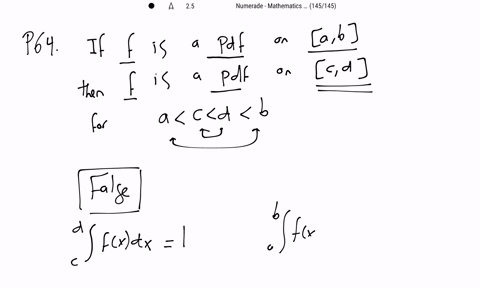 2.5 Numerade - Mathematics ... (145/145)
P64. If f is a pdf on [a,b]
then f is a pdf on [c,d]
for a < c < d < b
False
∫_c^d f(x) dx = 1 ∫_a^b f(x